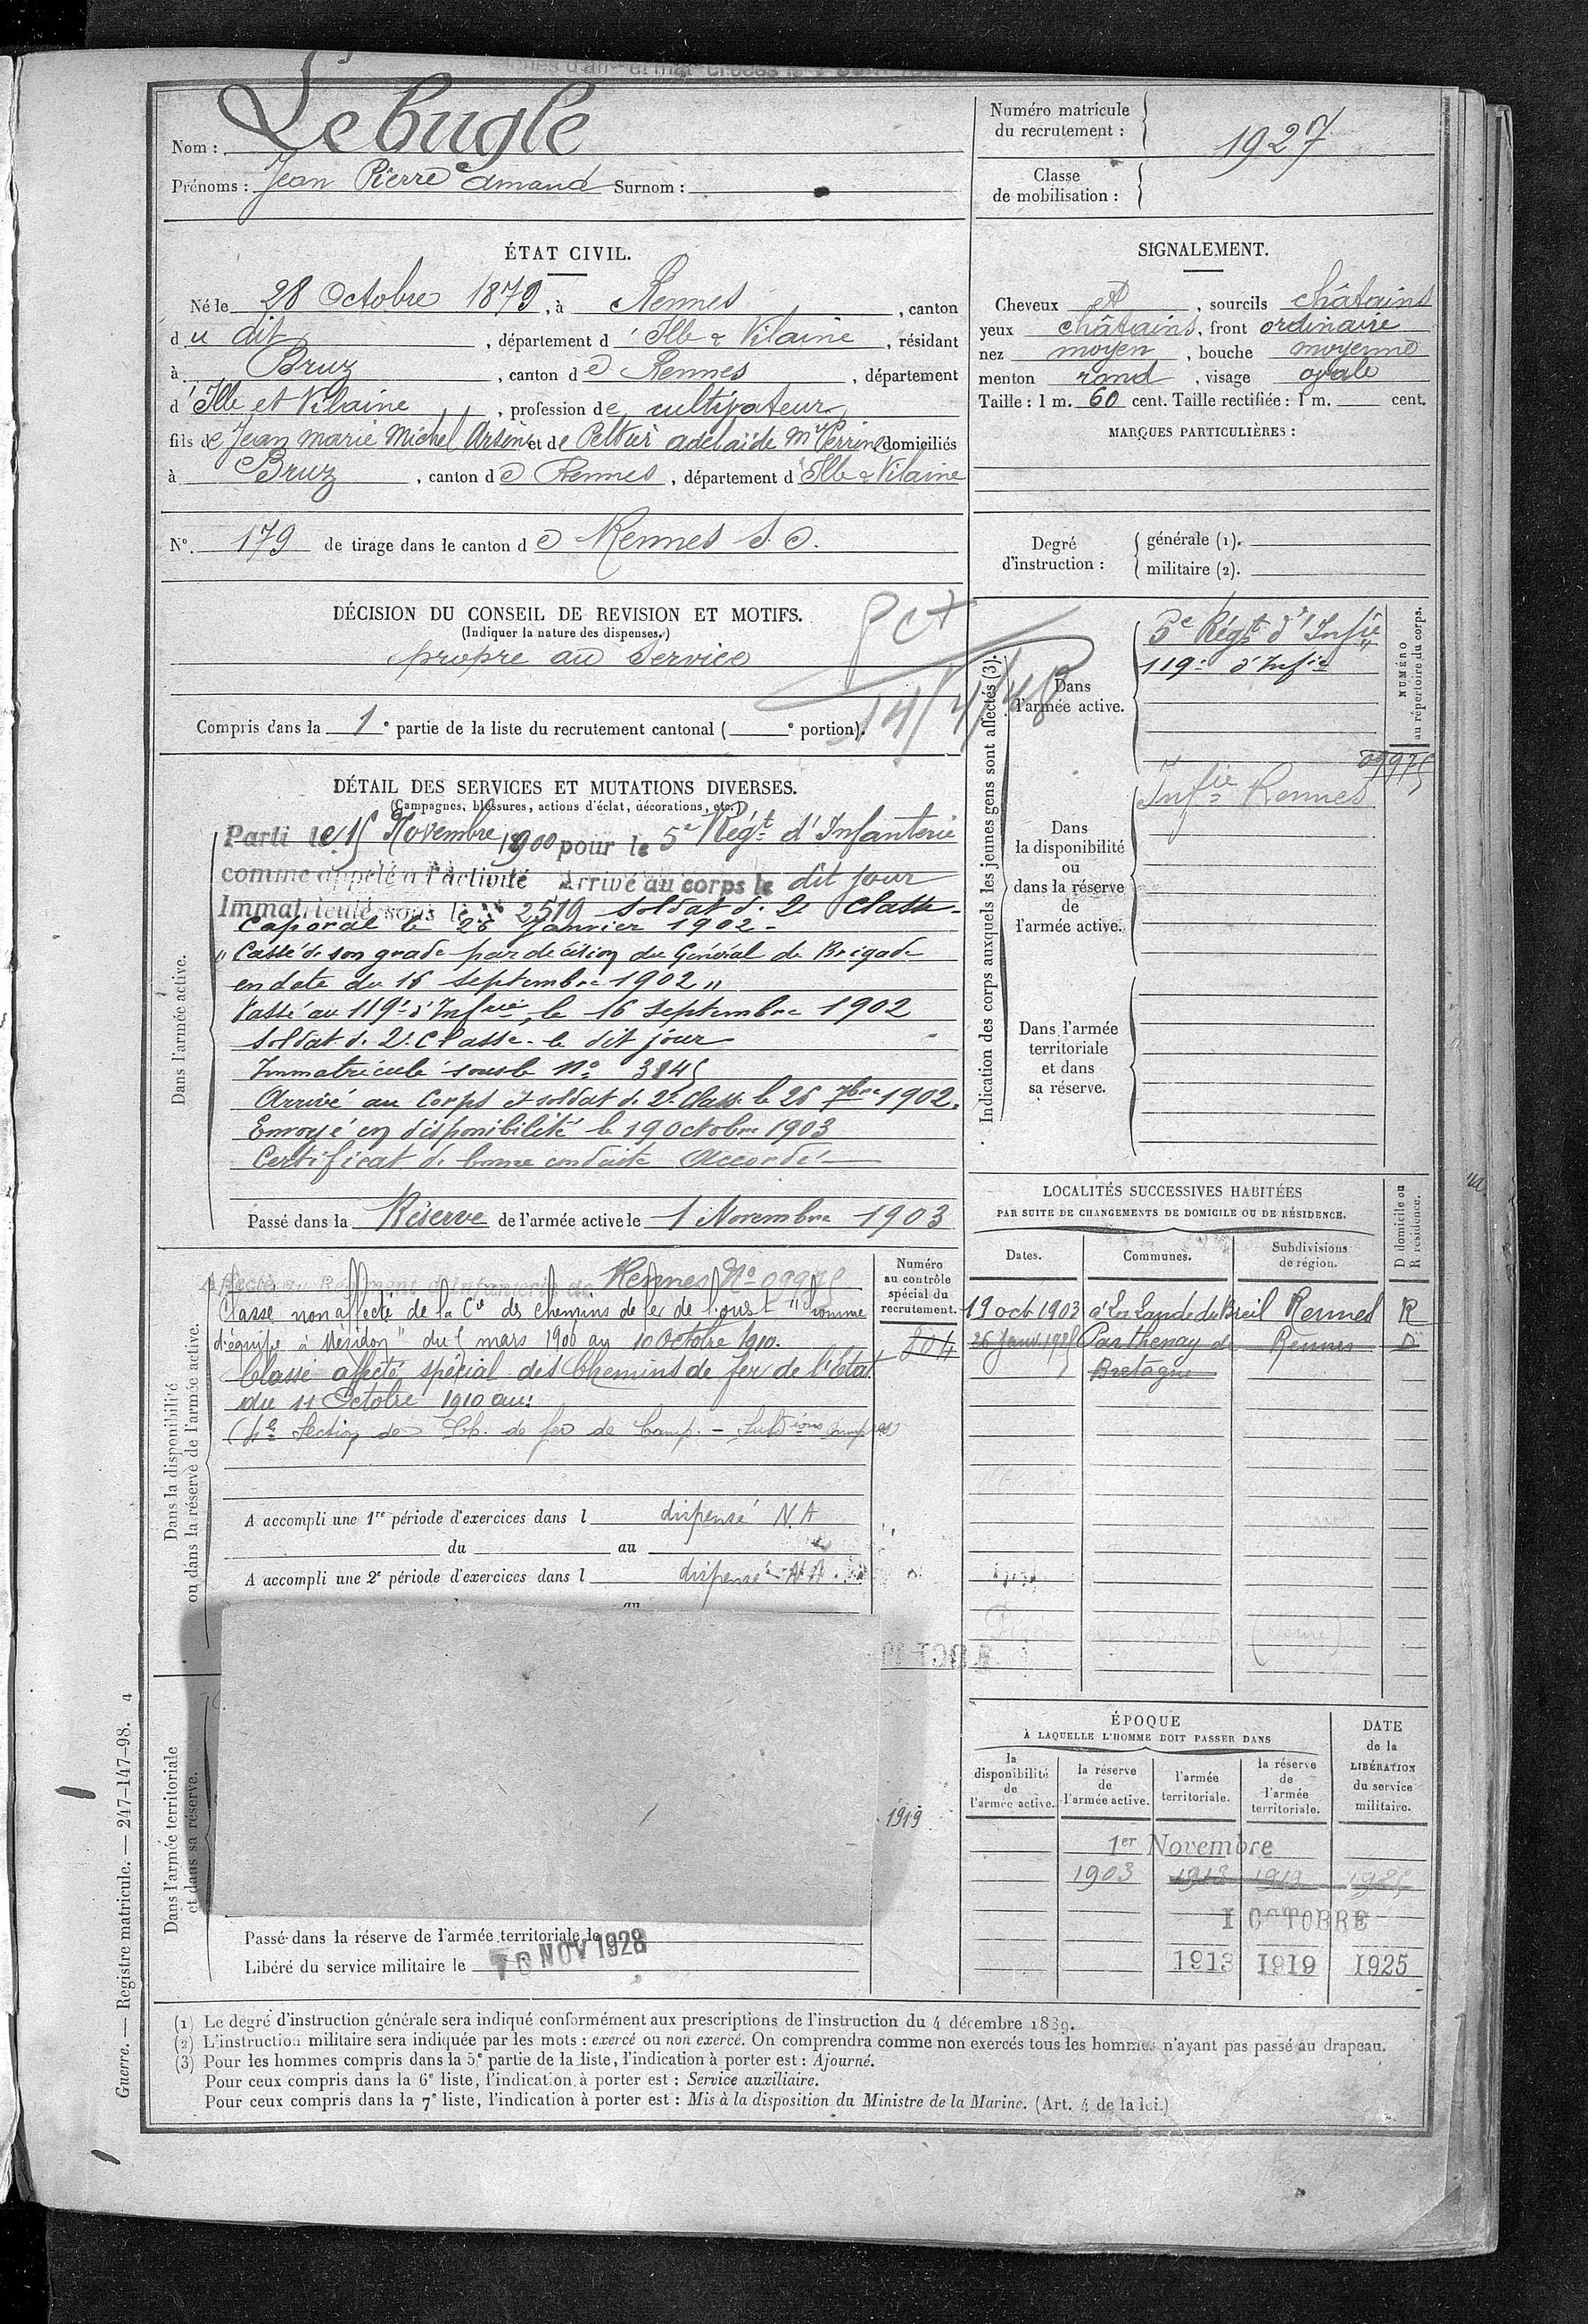 Lebugle
Nom :
Prénoms : Jean Pierre Amand Surnom :
Numéro matricule
du recrutement :
1927
Classe
de mobilisation :
ÉTAT CIVIL.
Né le 28 Octobre 1879, à Rennes, canton
du dit, département d'Ille & Vilaine, résidant
à Bruz, canton de Rennes, département
d'Ille et Vilaine, profession de cultivateur
fils de Jean Marie Michel Arsène et de Peltier adelaïde Mie Perrine domiciliés
à Bruz, canton de Rennes, département d'Ille & Vilaine
N° 179 de tirage dans le canton de Rennes S.O.
SIGNALEMENT.
Cheveux et, sourcils châtains
yeux châtains, front ordinaire
nez moyen, bouche moyenne
menton rond, visage ovale
Taille : 1 m. 60 cent. Taille rectifiée : 1 m. cent.
MARQUES PARTICULIÈRES :
Degré
d'instruction :
générale (1).
militaire (2).
DÉCISION DU CONSEIL DE REVISION ET MOTIFS.
(Indiquer la nature des dispenses.)
propre au service
Compris dans la 1e partie de la liste du recrutement cantonal ( e portion).
DÉTAIL DES SERVICES ET MUTATIONS DIVERSES.
(Campagnes, blessures, actions d'éclat, décorations, etc.)
Dans l'armée active.
Parti le 15 Novembre 1900 pour le 5e Régt d'Infanterie
comme appelé à l'activité Arrivé au corps le dit jour
Immatriculé sous le n° 2519 soldat de 2e classe
Caporal le 26 Janvier 1902
"Cassé de son grade par décision du Général de Brigade
en date du 16 septembre 1902"
Passé au 119e d'Infrie, le 16 septembre 1902
Soldat de 2e Classe le dit jour
Immatriculé sous le No 3845
Arrivé au Corps et soldat de 2e Classe le 26 7bre 1902.
Envoyé en disponibilité le 19 Octobre 1903
Certificat de bonne conduite Accordé
Passé dans la Réserve de l'armée active le 1 Novembre 1903
Indication des corps auxquels les jeunes gens sont affectés (3).
Dans
l'armée active.
5e Régt d'Infie
119e d'Infie
NUMÉRO
au répertoire du corps.
09975
Dans
la disponibilité
ou
dans la réserve
de
l'armée active.
Infie Rennes
Dans l'armée
territoriale
et dans
sa réserve.
Dans la disponibilité
ou dans la réserve de l'armée active.
Affecté au Régiment d'Infanterie de Rennes No 09975
Classé non affecté de la Cie des chemins de fer de l'ouest "homme
d'équipe à Mézidon" du 5 mars 1900 au 10 Octobre 1910.
Classé affecté spécial des Chemins de fer de l'État
du 11 Octobre 1910 au:
(4e Section de Ch. de fer de Camp.
A accompli une 1re période d'exercices dans l dispensé N.A
du au
A accompli une 2e période d'exercices dans l dispensé N.A.
au
Numéro
au contrôle
spécial du
recrutement.
804
LOCALITÉS SUCCESSIVES HABITÉES
PAR SUITE DE CHANGEMENTS DE DOMICILE OU DE RÉSIDENCE.
Dates.
Communes.
Subdivisions
de région.
D domicile ou
R résidence.
19 oct 1903 à La Lande du Breil Rennes R
Parthenay de Rennes D
Bretagne
Dans l'armée territoriale
et dans sa réserve.
1919
Passé dans la réserve de l'armée territoriale le
Libéré du service militaire le 10 NOV 1928
ÉPOQUE
À LAQUELLE L'HOMME DOIT PASSER DANS
la
disponibilité
de
l'armée active.
la réserve
de
l'armée active.
l'armée
territoriale.
la réserve
de
l'armée
territoriale.
DATE
de la
LIBÉRATION
du service
militaire.
1er Novembre
1903
1 OCTOBRE
1913 1919 1925
(1) Le degré d'instruction générale sera indiqué conformément aux prescriptions de l'instruction du 4 décembre 1889.
(2) L'instruction militaire sera indiquée par les mots : exercé ou non exercé. On comprendra comme non exercés tous les hommes n'ayant pas passé au drapeau.
(3) Pour les hommes compris dans la 5e partie de la liste, l'indication à porter est : Ajourné.
Pour ceux compris dans la 6e liste, l'indication à porter est : Service auxiliaire.
Pour ceux compris dans la 7e liste, l'indication à porter est : Mis à la disposition du Ministre de la Marine. (Art. 4 de la loi.)
Guerre. — Registre matricule. — 247-147-98. 4